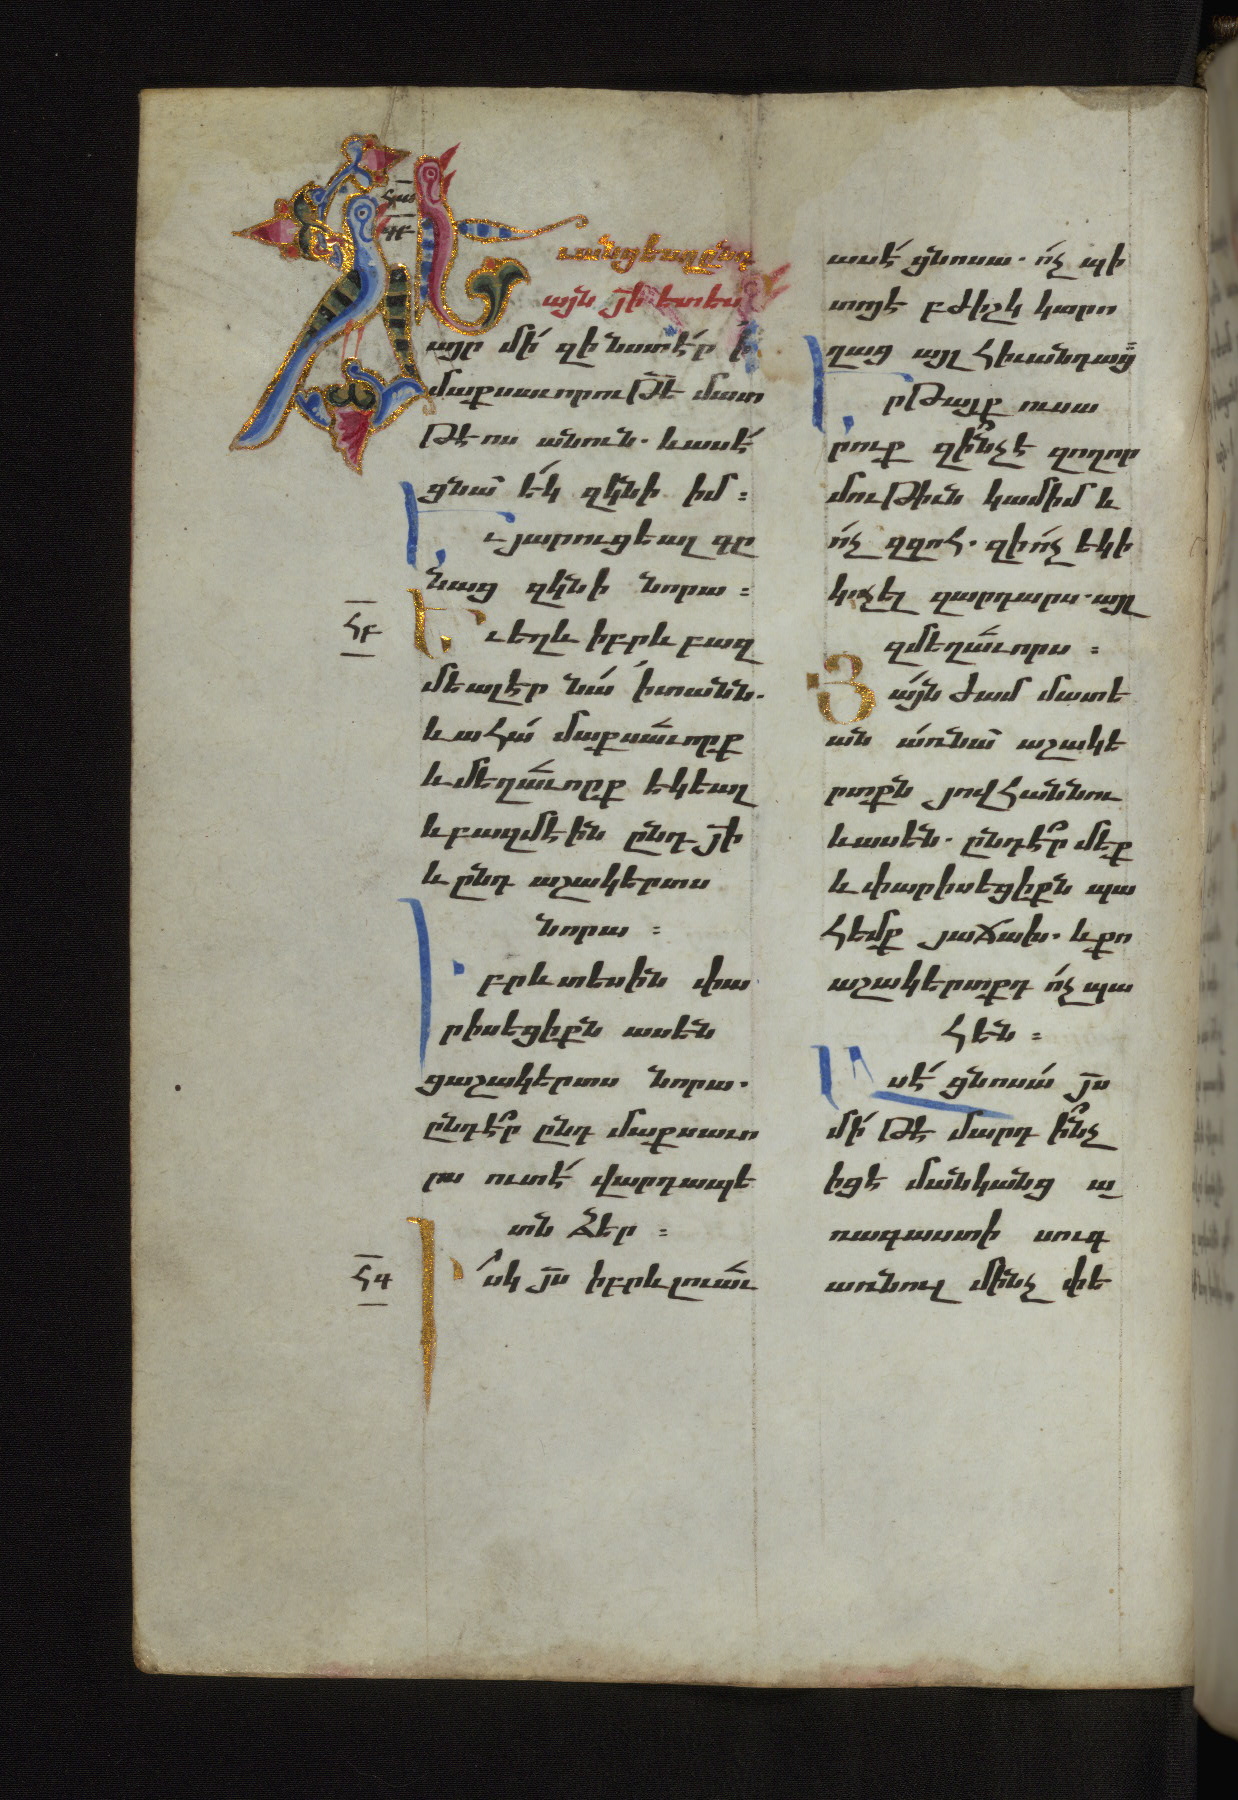 Եւ անցեալ ընդ
այն յի ետես
այր մի զի նստէր ի
մաքսաւորութե մատ
թէոս անուն. և ասէ՛
ցնա՛ ե՛կ զկնի իմ :
Եւ յարուցեալ գը
նաց զկնի նորա :
ՀԲ
Եւ եղև իբրև բազ
մեալ էր նա՛ ի տանն.
և ահա՛ մաքսաւորք
և մեղաւորք եկեալ
և բազմէին ընդ յի
և ընդ աշակերտս
նորա :
Իբրև տեսին փա
րիսեցիքն ասեն
ցաշակերտս նորա.
ընդէ՞ր ընդ մաքսաւո
րս ուտէ՛ վարդապե
տն ձեր :
ՀԳ
Իսկ յս իբրև լուաւ
ասէ՛ ցնոսա. ո՛չ պի
տոյ է բժիշկ կարո
ղաց այլ հիւանդաց :
Երթայք ուսա
րուք զի՞նչ է զողոր
մութիւն կամիմ և
ո՛չ զզոհ. զի ո՛չ եկի
կոչել զարդարս. այլ
զմեղաւորս :
Յա՛յնժամ մատե
ան առ նա՛ աշակե
րտքն յովհաննու
և ասեն. ընդէ՞ր մեք
և փարիսեցիքն պա
հեմք յաճախ. և քո
աշակերտքդ ո՛չ պա
հեն :
Ասէ՛ ցնոսա՛ յս
մի՛ թէ մարդ ի՞նչ
իցէ մանկանց ա
ռագաստի սուգ
առնուլ մինչ փե